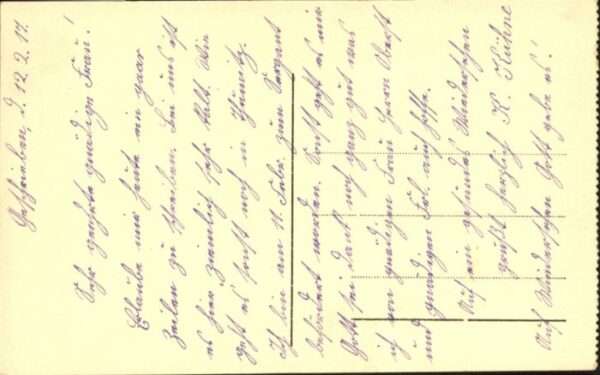 Geschrieben, d. 12.2.17.
Sehr geehrte gnädige Frau!
Erlaube mir heute ein paar
Zeilen zu schreiben. Bei uns ist
es hier ziemlich sehr kalt. Wie
geht es sonst noch in
Ich bin am 11. Febr. zum Sergant
befördert worden. Sonst geht es mir
Gott sei dank noch ganz gut was
ich von gnädigen Frau Herrn Oberst
und gnädigen Frl. auch hoffe.
Auf ein gesundes Wiedersehen
grüßt herzlich K. Kühne
Auf Wiedersehen Gott gebe es!